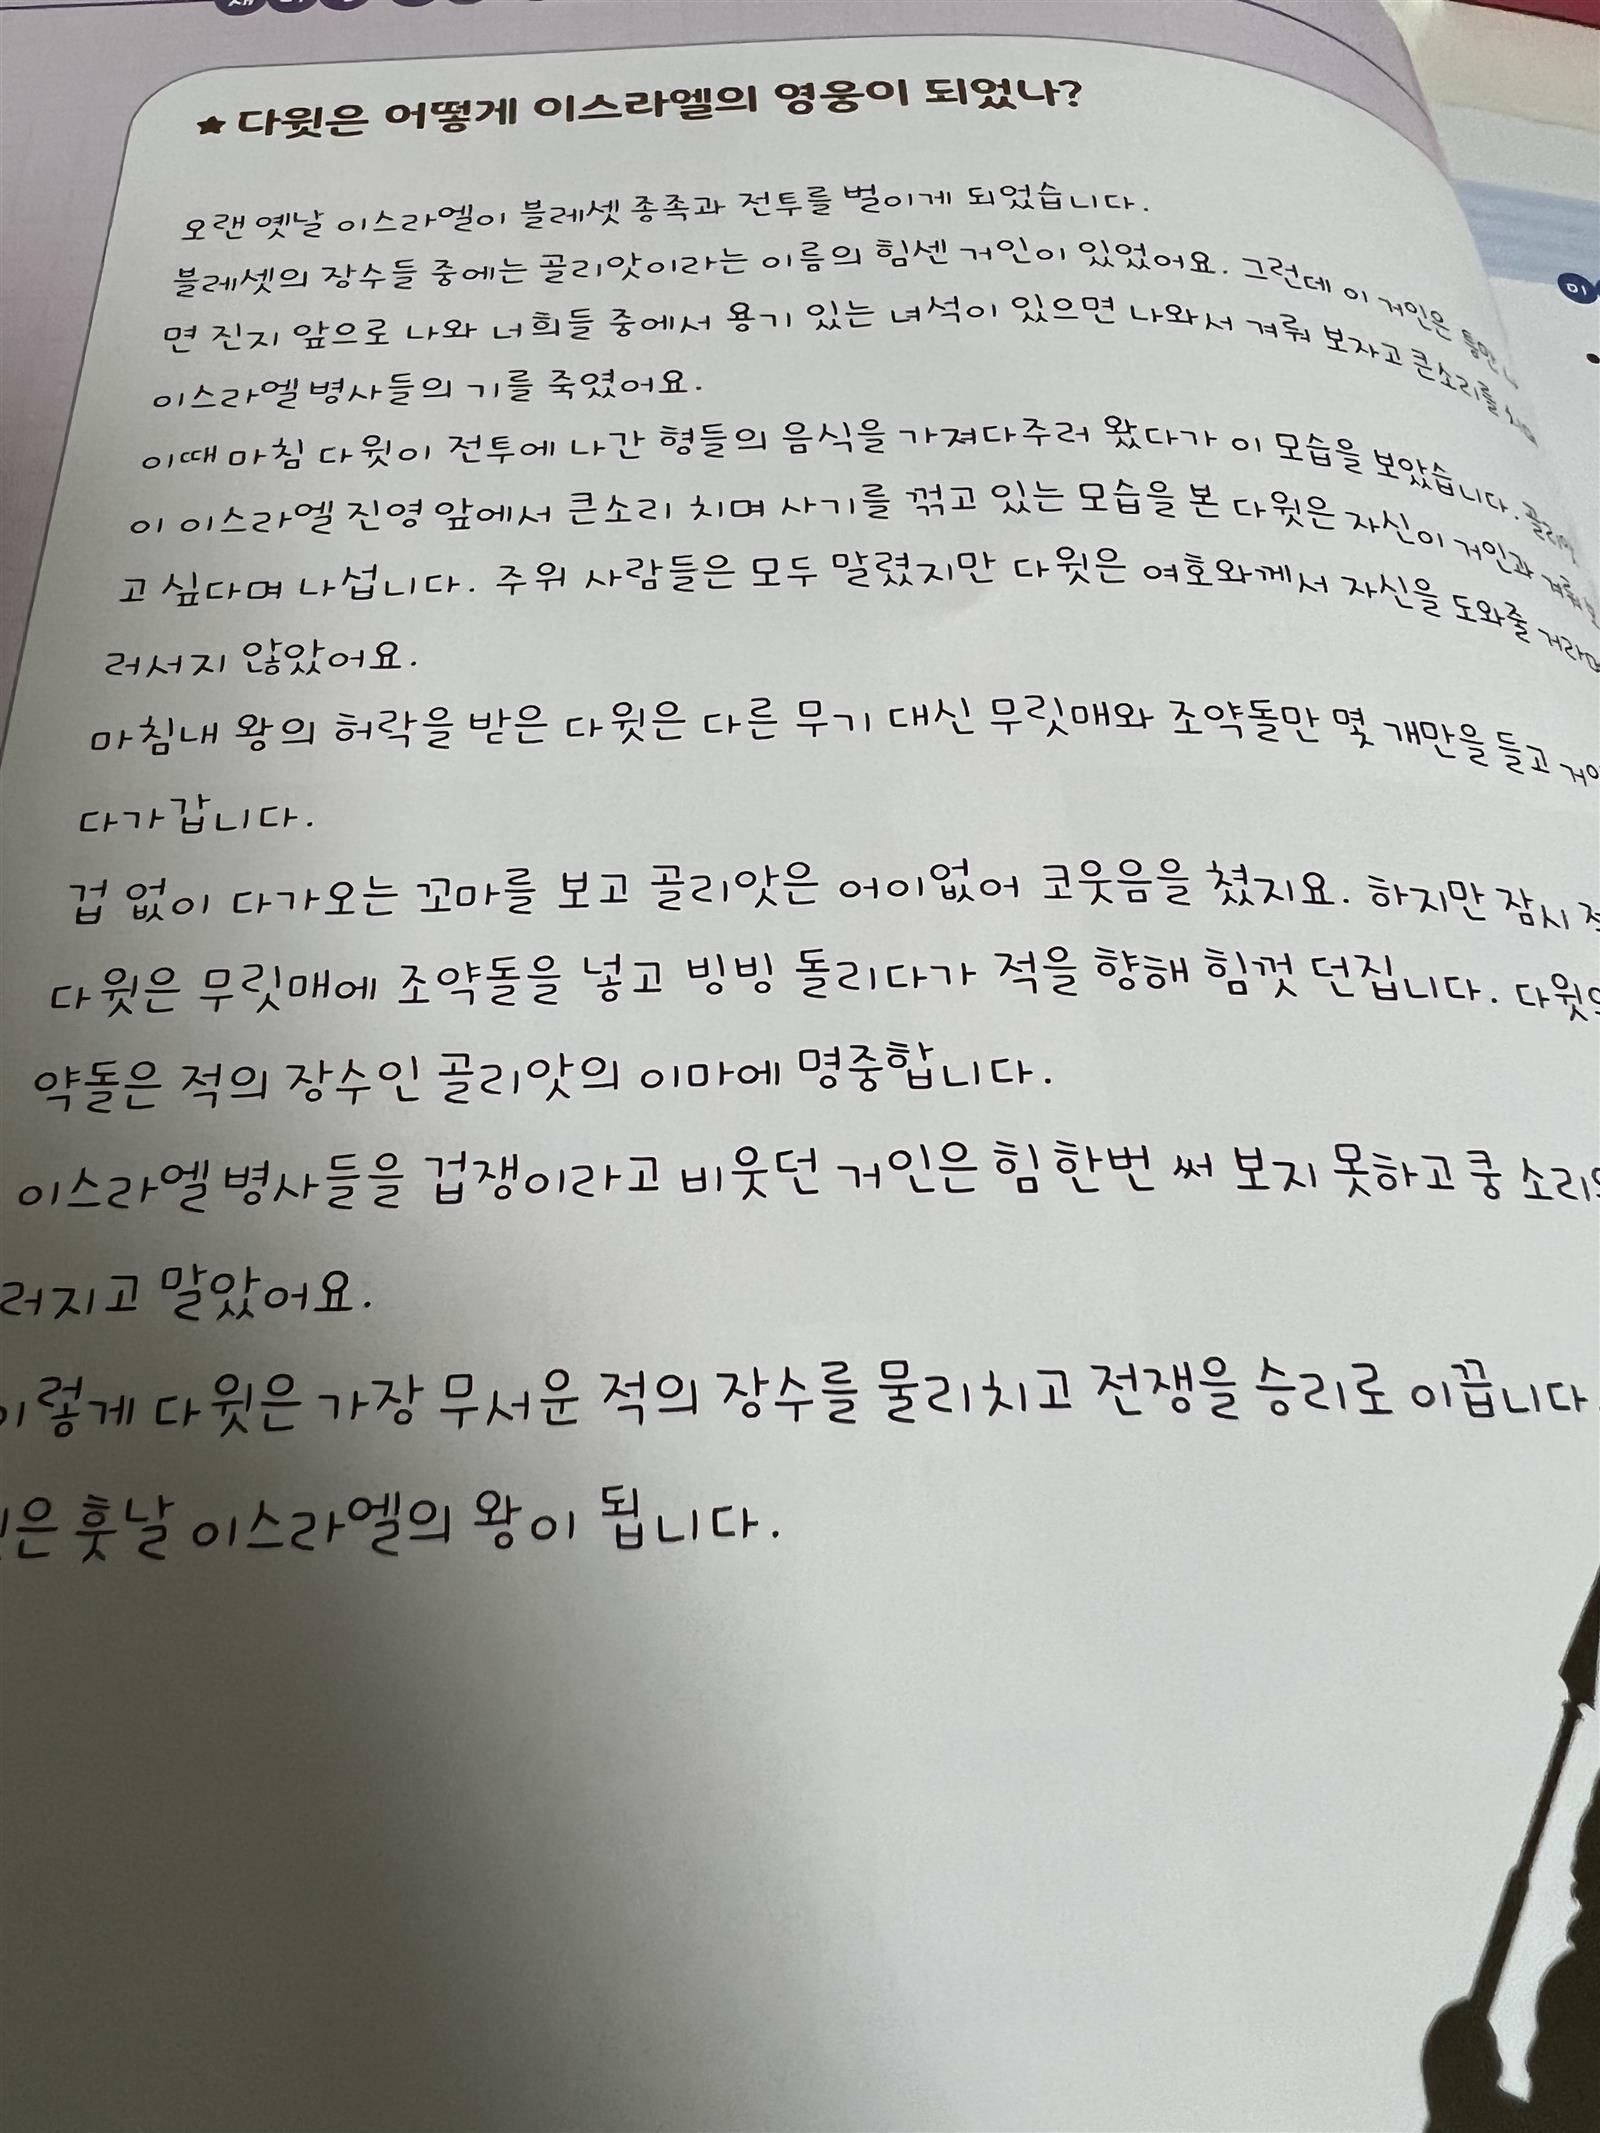 ★ 다윗은 어떻게 이스라엘의 영웅이 되었나?
오랜 옛날 이스라엘이 블레셋 종족과 전투를 벌이게 되었습니다.
블레셋의 장수들 중에는 골리앗이라는 이름의 힘센 거인이 있었어요. 그런데 이 거인은 틈만
면 진지 앞으로 나와 너희들 중에서 용기 있는 녀석이 있으면 나와서 겨뤄 보자고 큰소리를
이스라엘 병사들의 기를 죽였어요.
이때 마침 다윗이 전투에 나간 형들의 음식을 가져다주러 왔다가 이 모습을 보았습니다.
이 이스라엘 진영 앞에서 큰소리 치며 사기를 꺾고 있는 모습을 본 다윗은 자신이 거인과 겨뤄
고 싶다며 나섭니다. 주위 사람들은 모두 말렸지만 다윗은 여호와께서 자신을 도와줄 거라며
러서지 않았어요.
마침내 왕의 허락을 받은 다윗은 다른 무기 대신 무릿매와 조약돌만 몇 개만을 들고
다가갑니다.
겁 없이 다가오는 꼬마를 보고 골리앗은 어이없어 코웃음을 쳤지요. 하지만 잠시
다윗은 무릿매에 조약돌을 넣고 빙빙 돌리다가 적을 향해 힘껏 던집니다. 다윗의
약돌은 적의 장수인 골리앗의 이마에 명중합니다.
이스라엘 병사들을 겁쟁이라고 비웃던 거인은 힘 한번 써 보지 못하고 쿵 소리와
러지고 말았어요.
이렇게 다윗은 가장 무서운 적의 장수를 물리치고 전쟁을 승리로 이끕니다.
은 훗날 이스라엘의 왕이 됩니다.